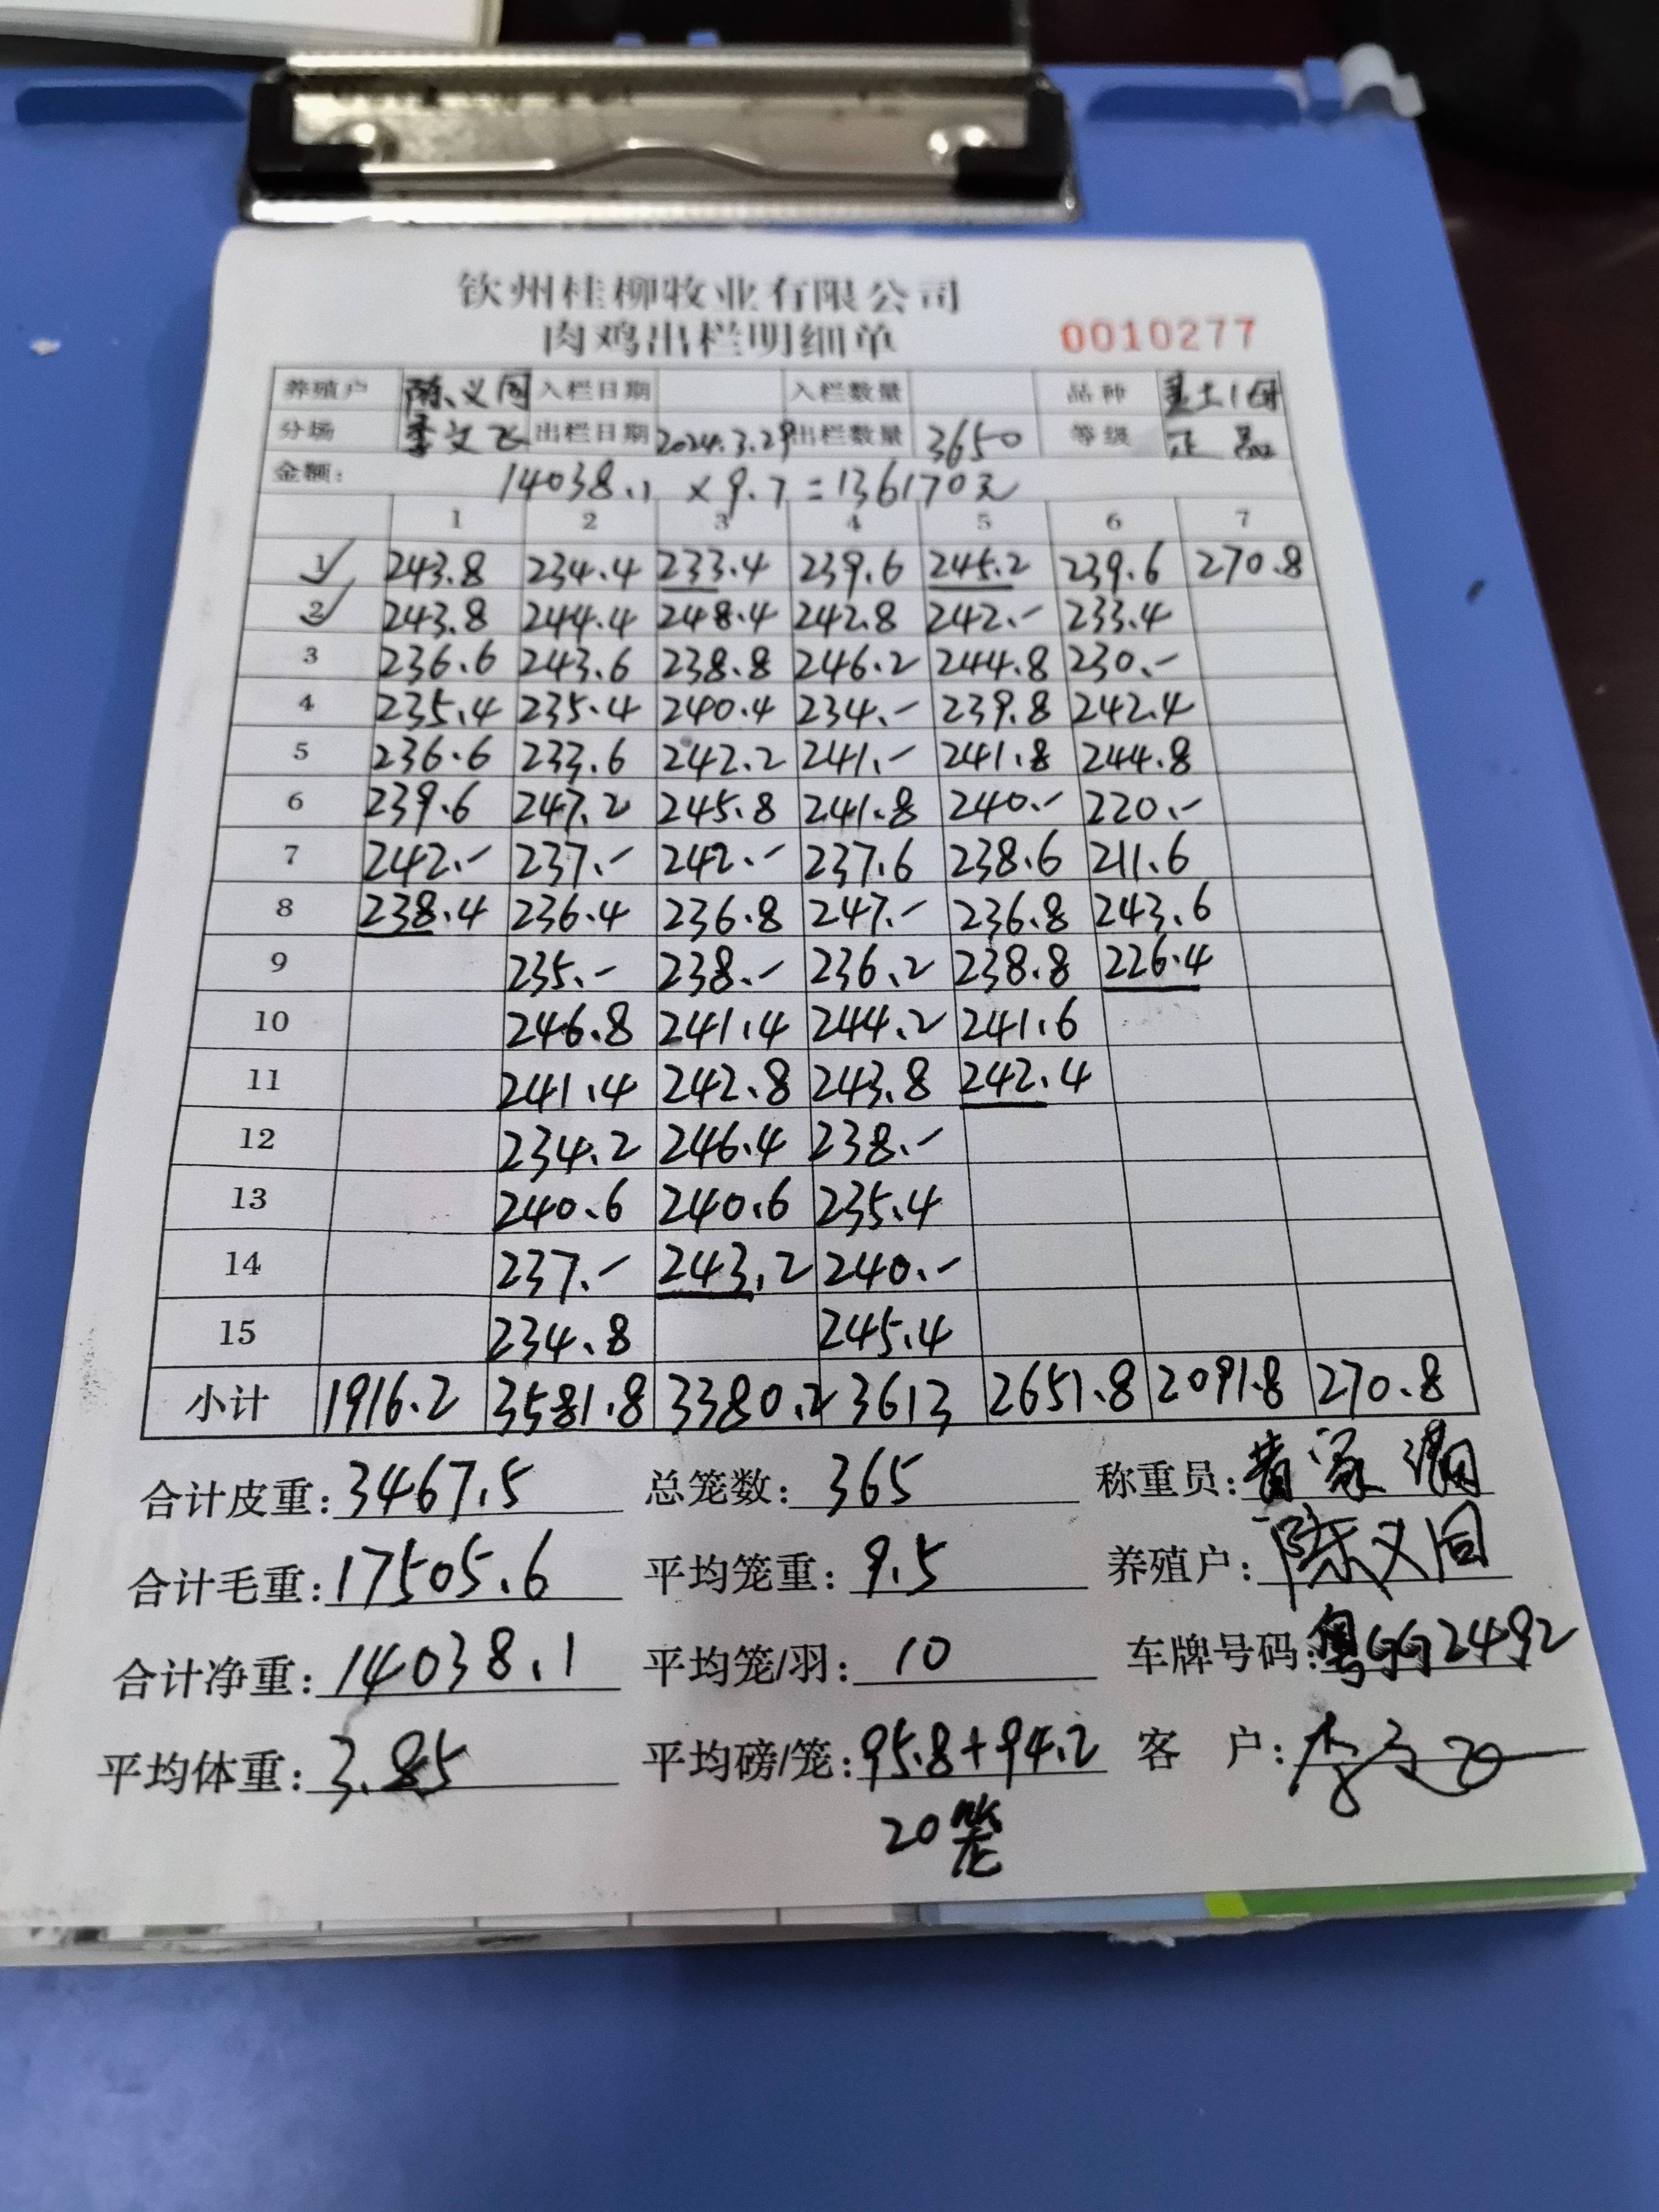 钦州桂柳牧业有限公司
肉鸡出栏明细单 0010277
养殖户 陈义同 入栏日期 入栏数量 品种 土1母
分场 李文飞 出栏日期 2024.3.29 出栏数量 3650 等级 正品
金额: 14038.1 × 9.7 = 136170元
1 2 3 4 5 6 7
1 243.8 234.4 233.4 239.6 245.2 239.6 270.8
2 243.8 244.4 248.4 242.8 242.- 233.4
3 236.6 243.6 238.8 246.2 244.8 230.-
4 235.4 235.4 240.4 234.- 239.8 242.4
5 236.6 233.6 242.2 241.- 241.8 244.8
6 239.6 247.2 245.8 241.8 240.- 220.-
7 242.- 237.- 242.- 237.6 238.6 211.6
8 238.4 236.4 236.8 247.- 236.8 243.6
9 235.- 238.- 236.2 238.8 226.4
10 246.8 241.4 244.2 241.6
11 241.4 242.8 243.8 242.4
12 234.2 246.4 238.-
13 240.6 240.6 235.4
14 237.- 243.2 240.-
15 234.8 245.4
小计 1916.2 3581.8 3380.2 3613 2651.8 2091.8 270.8
合计皮重: 3467.5 总笼数: 365 称重员: 黄家
合计毛重: 17505.6 平均笼重: 9.5 养殖户: 陈义同
合计净重: 14038.1 平均笼/羽: 10 车牌号码: 粤GG2492
平均体重: 3.85 平均磅/笼: 95.8+94.2 客 户:
20笼